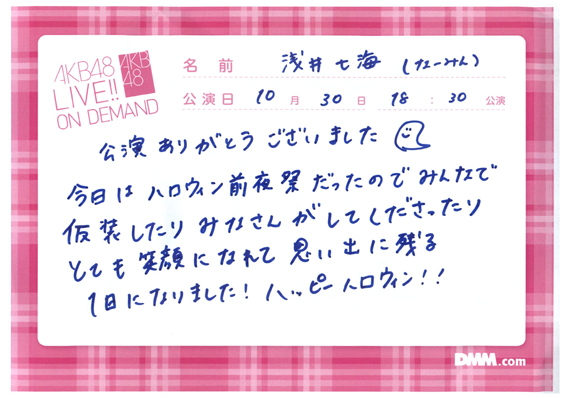 AKB48
LIVE!!
ON DEMAND
AKB
48
名前 浅井七海 (なーみん)
公演日 10月30日 18:30公演
公演ありがとうございました
今日はハロウィン前夜祭だったのでみんなで
仮装したりみなさんがしてくださったり
とても笑顔になれて思い出に残る
1日になりました!ハッピーハロウィン!!
DMM.com